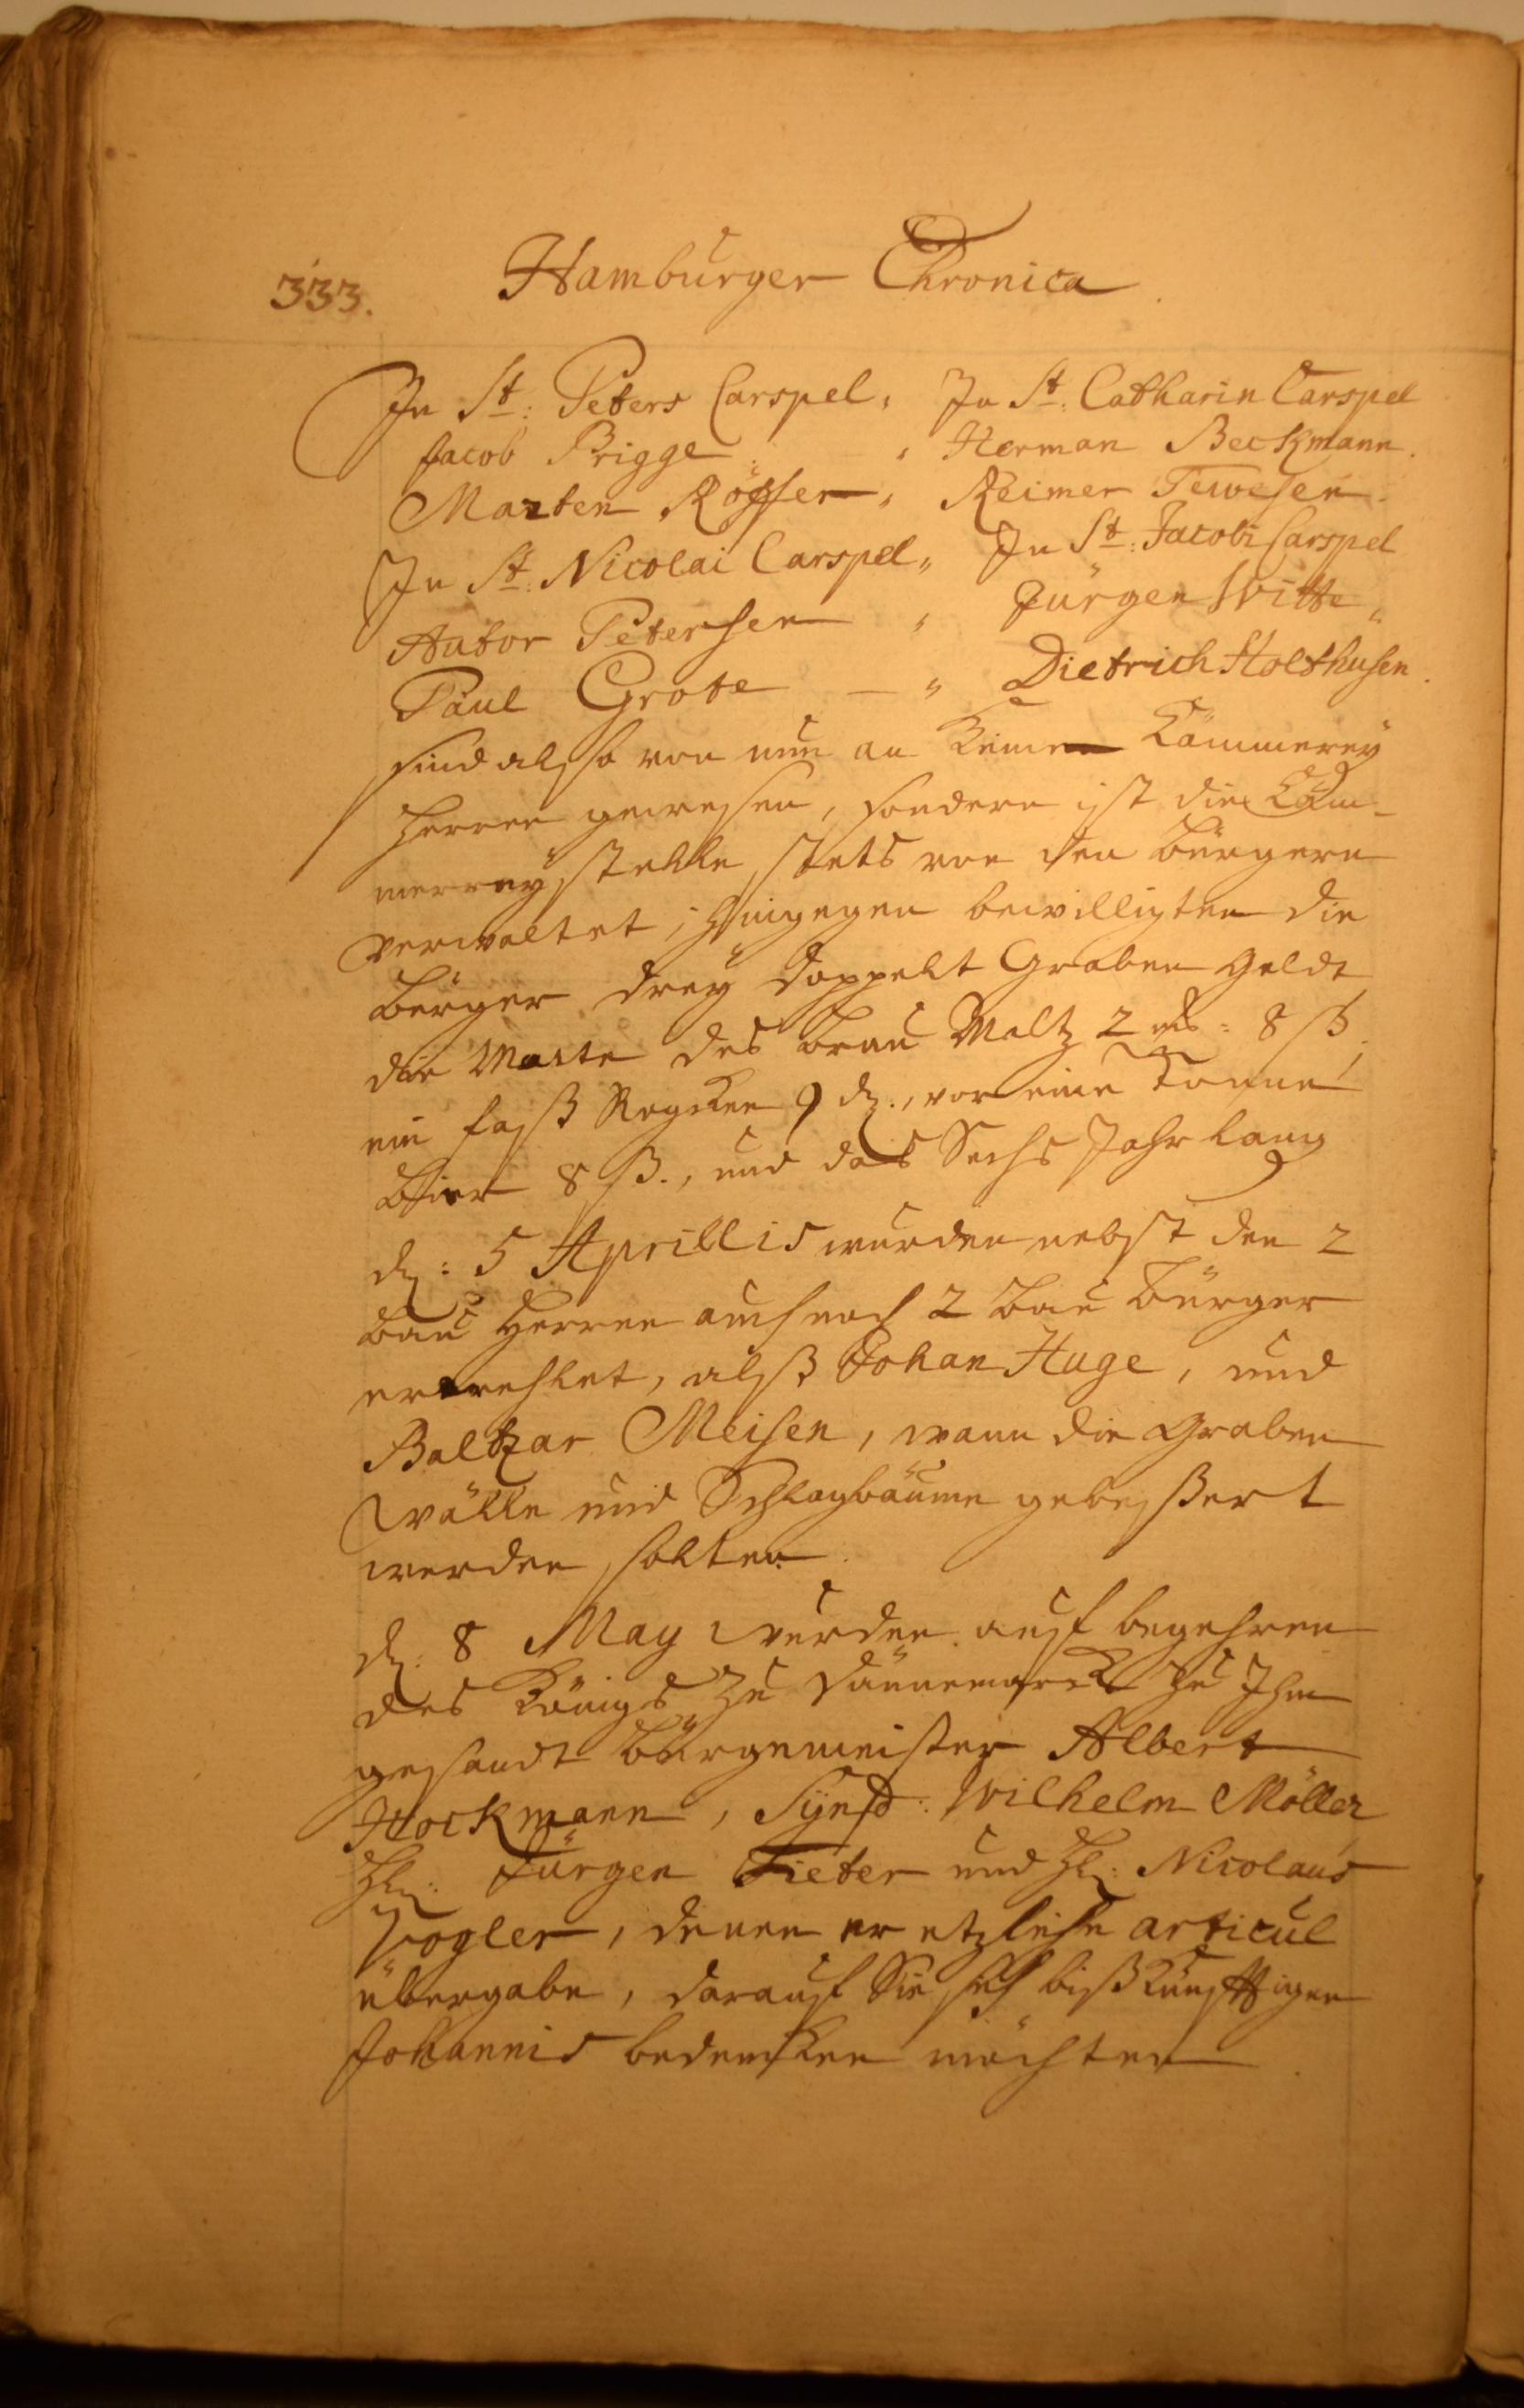 333. Hamburger Chronica
In St: Peters Carspel, In St. Catharin Carspel
Jacob Prigge, Herman Beckmann.
Marten Rößer, Reimer Tewesen
In St. Nicolai Carspel, In St: Jacobi Carspel
Autor Petersen, Jürgen Witte,
Paul Grote — " Dietrich Holthusen.
sind alsso von nun an keine Kämmereÿ
Herren gewesen, sondern ist die Cäm-
mereÿ stelle stets von den bürgern
verwaltet; hingegen bewilligten die
bürger dreÿ doppelt Graben Geldt
die Maste des brau Maltz 2 mk: 8 ß,
ein faß Rogken 9 d., vor eine Tonne
bier 8 ß., und das Sechs Jahr lang
d: 5 Aprillis wurden nebst den 2
bau Herren auch noch 2 bau bürger
erwehlet, alß Johan Huge, und
Baltzar Meisen, wann die Graben
wälle und Schlagbäume gebeßert
werden solten.
d: 8 May wurden auf begehren
des Königs zu Dännemarck zu Ihm
gesandt bürgemeister Albert
Hockmann, Sÿnd: Wilhelm Möller
H: Jürgen Fieter und H: Nicolaus
Vogler, denen er etzliche articul
übergabe, darauf Sie sich biß künfftigen
Johannis bedencken möchten